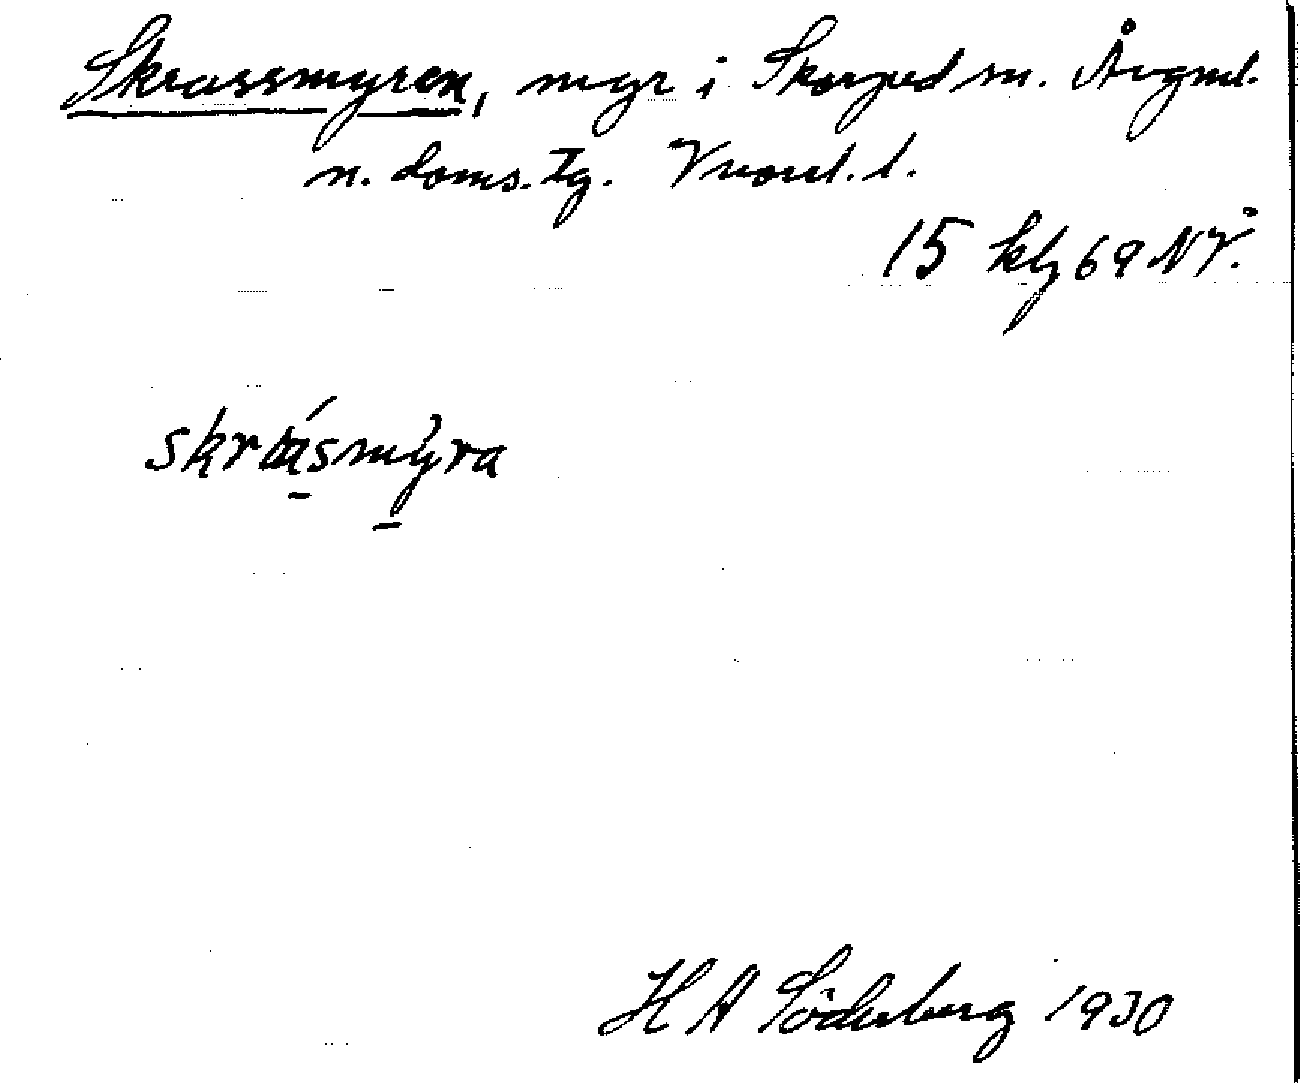 Skrassmyren, myr i Skorped sn. Ångml.
n. doms. tg. Vnorrl. l.
15 kbg 69 NV.
skrásmýra
H A Söderberg 1930